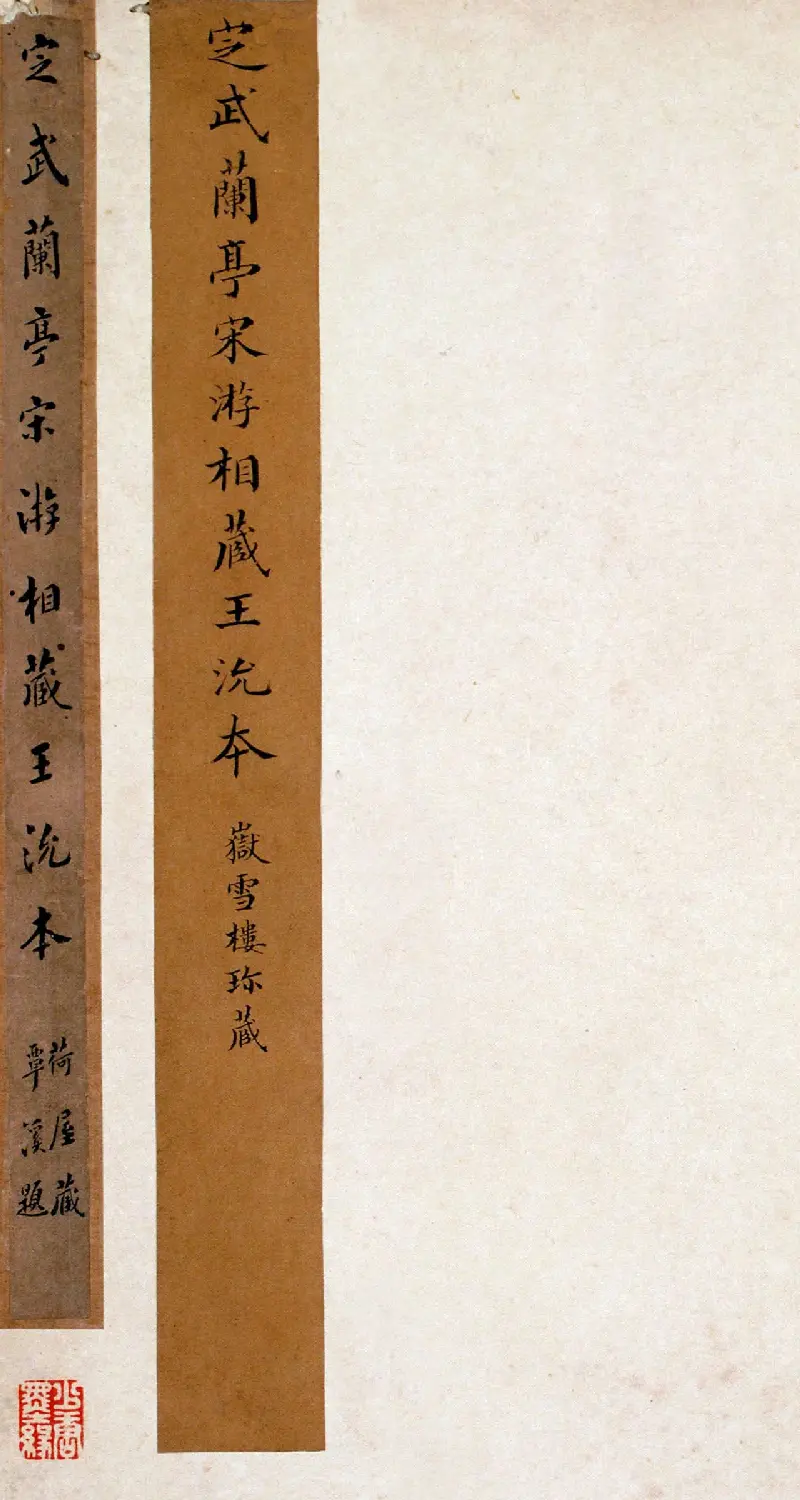 定武蘭亭宋游相藏王沇本
嶽雪樓珎藏
定武蘭亭宋游相藏王沇本
荷屋藏
覃溪題
少唐
墨緣